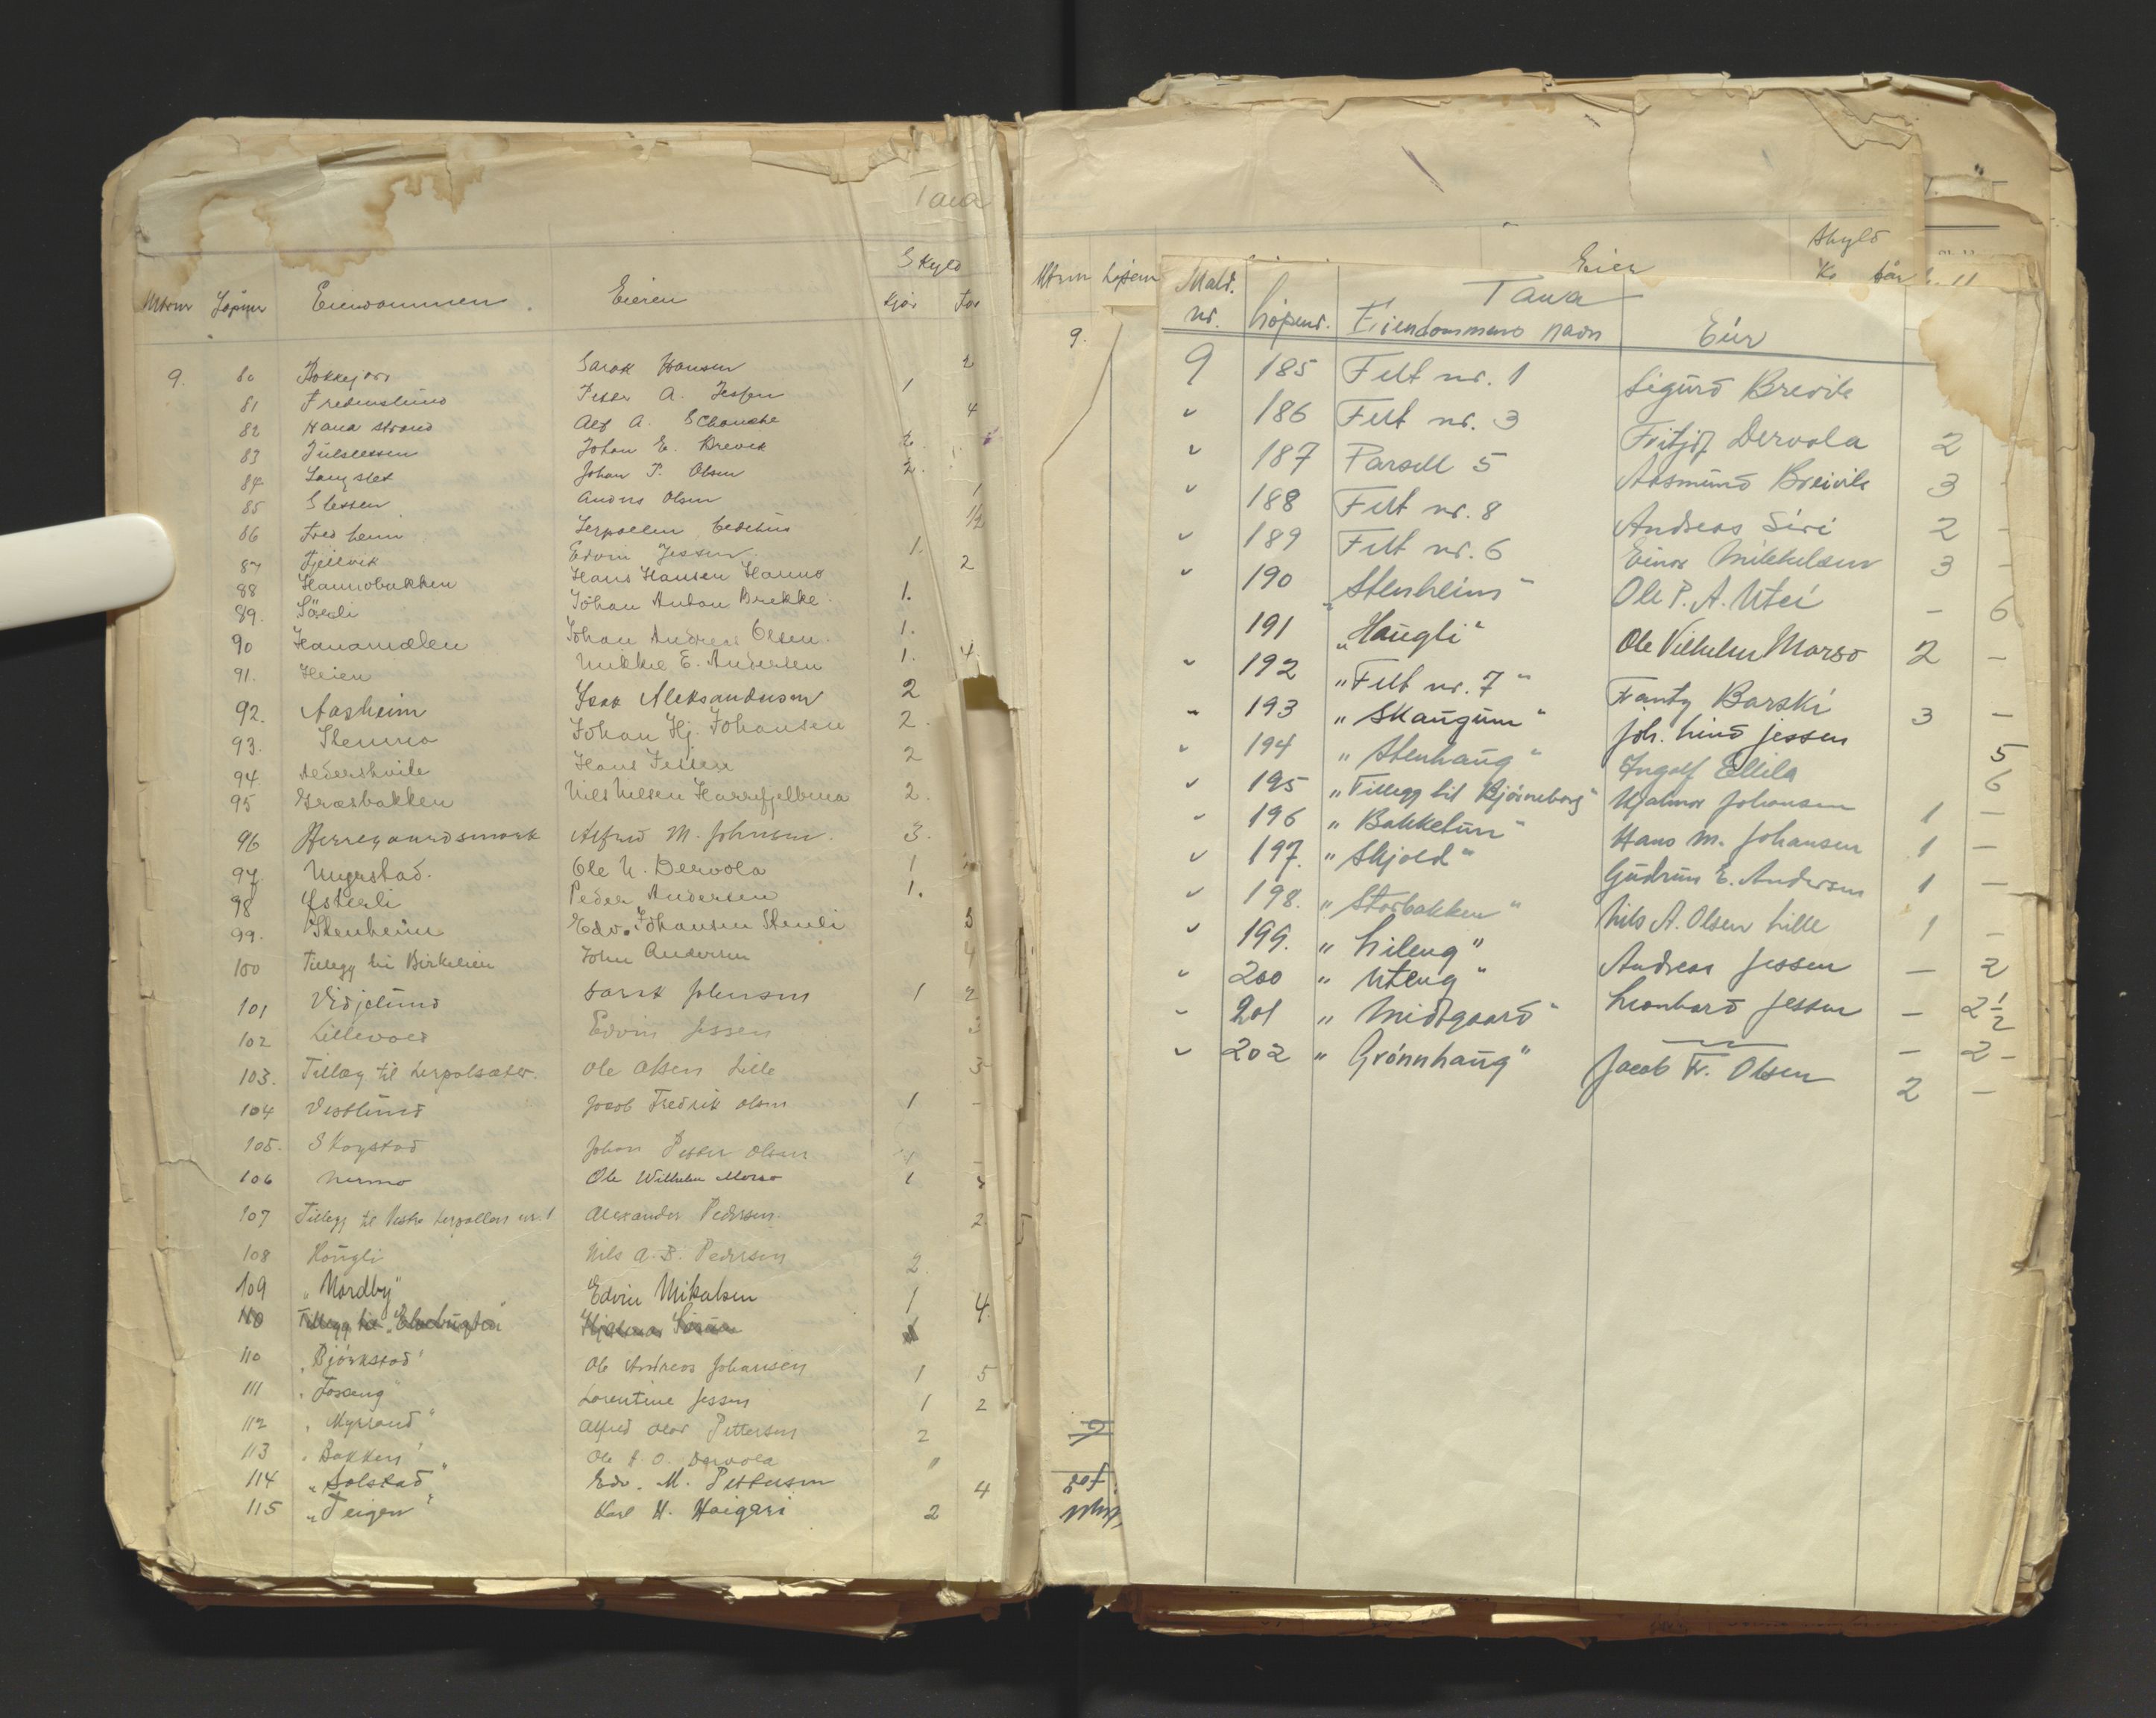 Tana
Skyld
Mtrnr Löpnr Eiendommen Eieren Kjör For
9. 80 Bokkejors Sarak Hansen 2
81 Fredenslund Peder A. Jessen 1
82 Hana strand Alf A. Schanche 4
83 Johan E. Brevik 2
84 Langslet Johan P. Olsen 2
85 Slessen Andrus Olsen 1
86 Fredheim 1/2
87 Fjellvik Edvin Jessen 1. 2
88 Hannobakken Hans Hansen Hanno
89. Söreli Johan Anton Brekke 1.
90 Hanamælen Johan Andreas Olsen 1.
91. Heien Mikkel E. Andersen 1. 4.
92. Aasheim Isak Aleksandersen 2
93. Stenmo Johan Hj. Johansen 2.
94. Hans Jessen 2
95 Græsbakken Nils Nilsen Harrefjelbma 2.
96 Herregaardsmark Alfred M. Johnsen. 3.
97. Myrstad. Ole N. Dervola 1
98 Österli Peder Andersen 1.
99. Stenheim Edv. Johansen Stenli 3
100 Tillegg til Birkelien John Andersen 4
101 Vidjelund Johnsen 1 2
102 Lillevold Edvin Jessen 3
103. Tillæg til Lerpolsæter. Ole Olsen Lille 3
104 Vestlund Jacob Fredrik Olsen 1 -
105. Skogstad Johan Peder Olsen 1 -
106 Nermo Ole Wilhelm Morso 1 3
107 Tillegg til Vestre Lerpollen nr. 1 Alexander Pedersen. 2
108 Haugli Nils A. B. Pedersen 2.
109 „Nordby" Edvin Mikalsen 1 4.
110 Tillegg til „Elvebugten" Hjalmar 1
110 „Björkstad" Ole Andreas Johansen 1 5
111 „Foseng" Lorentine Jessen 1 2
112 „Myrland" Alfred Olav Pettersen 2
113 „Bakken" Ole P. O. Dervola
114 „Solstad" Edv. M. Pettersen 4
115 „Teigen" Karl H. Haigari 2
Mtrnr Löpenr Eier Skyld
Kr Ör
9.
Matr. nr. Löpenr. Tana
Eiendommens navn Eier
9 185 Felt nr. 1 Sigurd Brevik
" 186 Felt nr. 3 Fritjof Dervola 2 -
" 187 Parsell 5 Aasmund Breivik 3 -
" 188 Felt nr. 8 Andreas Siri 2 -
" 189 Felt nr. 6 Einar Mikkelsen 3 -
" 190 „Stenheim" Ole P. A. Utsi - 6
191 „Haugli" Ole Vilhelm Morso 2 -
" 192 "Felt nr. 7" Frantz Barski 3 -
" 193 "Skaugum" Joh. Lind Jessen 5
" 194 "Stenhaug" Ingolf Ellila 6
" 195 "Tillegg til Bjørneborg" Hjalmar Johansen 1 -
" 196 "Bakketun" Hans M. Johansen 1 -
" 197. "Skjold" Gudrun E. Andersen 1 -
" 198. "Storbakken" Nils A. Olsen Lille 1 -
" 199. "Lileng" Andreas Jessen - 2
" 200 "Uteng" Leonhard Jessen - 2 1/2
" 201 "Midtgaard" - 2 -
" 202 "Grönnhaug" Jacob Fr. Olsen 2 -